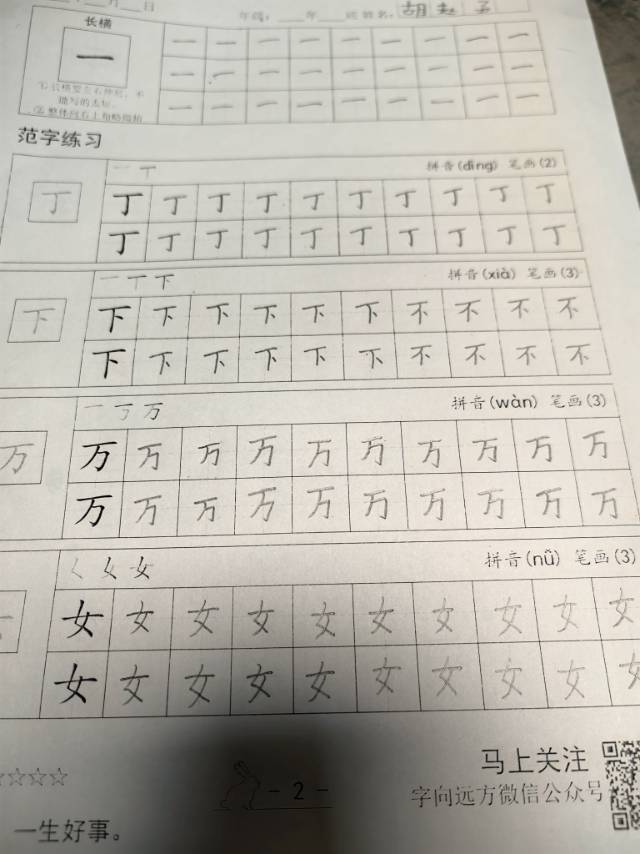 月 日
年级：___年___班 姓名：胡
长横
一 一 一 一 一 一 一 一 一
一 一 一 一 一 一 一 一 一
一 一 一 一 一 一 一 一 一
范字练习
一 丁 拼音(dīng) 笔画(2)
丁 丁 丁 丁 丁 丁 丁 丁 丁 丁 丁
丁 丁 丁 丁 丁 丁 丁 丁 丁 丁
一 丅 下 拼音(xià) 笔画(3)
下 下 下 下 下 下 下 不 不 不 不
下 下 下 下 下 下 不 不 不 不
一 丆 万 拼音(wàn) 笔画(3)
万 万 万 万 万 万 万 万 万 万 万
万 万 万 万 万 万 万 万 万 万
𡿨 女 女 拼音(nǚ) 笔画(3)
女 女 女 女 女 女 女 女 女 女
女 女 女 女 女 女 女 女 女 女
☆☆☆☆
马上关注
- 2 -
字向远方微信公众号
一生好事。